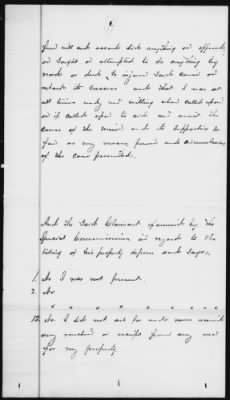 free will and accord did anything or offered,
or sought or attempted to do anything by
words or deeds to injure said cause or
retard its success and that I was at
all times ready and willing when called upon
or if called upon to aid and assist the
cause of the Union and its supporters so
far as my means power and circumstances
of the case permitted.
And the said Claimant examined by the
Special Commissioner in regards to the
taking of his property deposes and says,
1. As I was not present.
2. As
" " " " " " "
12. As I did not ask for and never received
any voucher or receipt from any one
for my property.